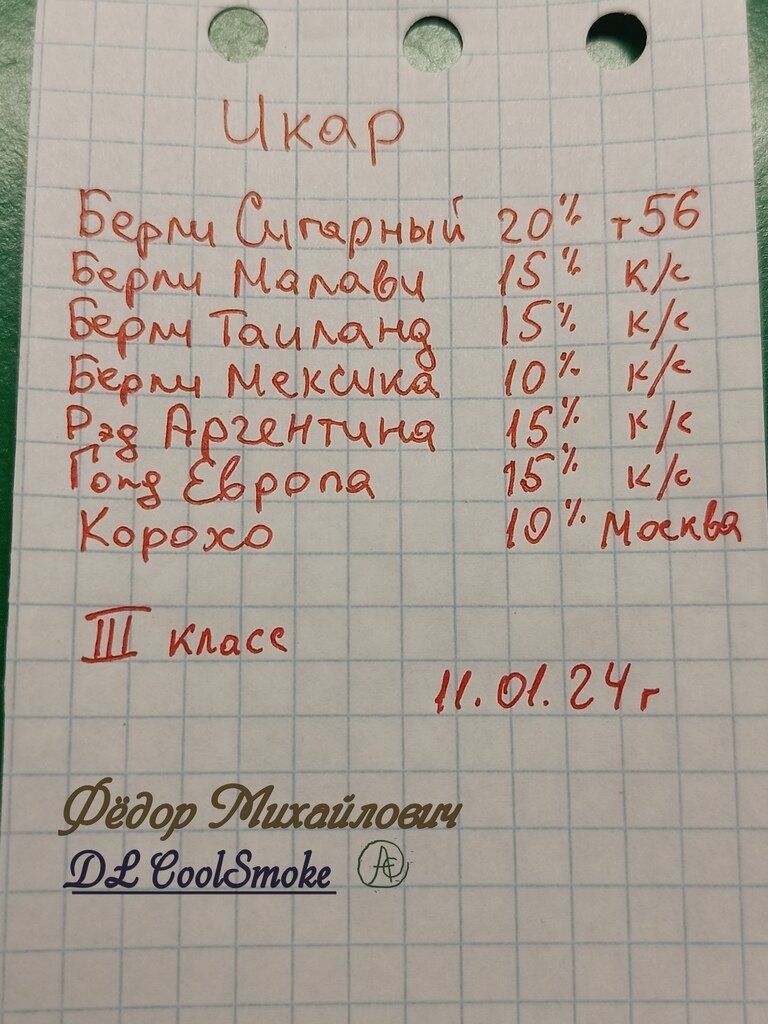 Икар
Берли Сигарный 20% т56
Берли Малави 15% к/с
Берли Таиланд 15% к/с
Берли Мексика 10% к/с
Рэд Аргентина 15% к/с
Голд Европа 15% к/с
Корохо 10% Москва
III класс
11.01.24 г
Фёдор Михайлович
DL CoolSmoke